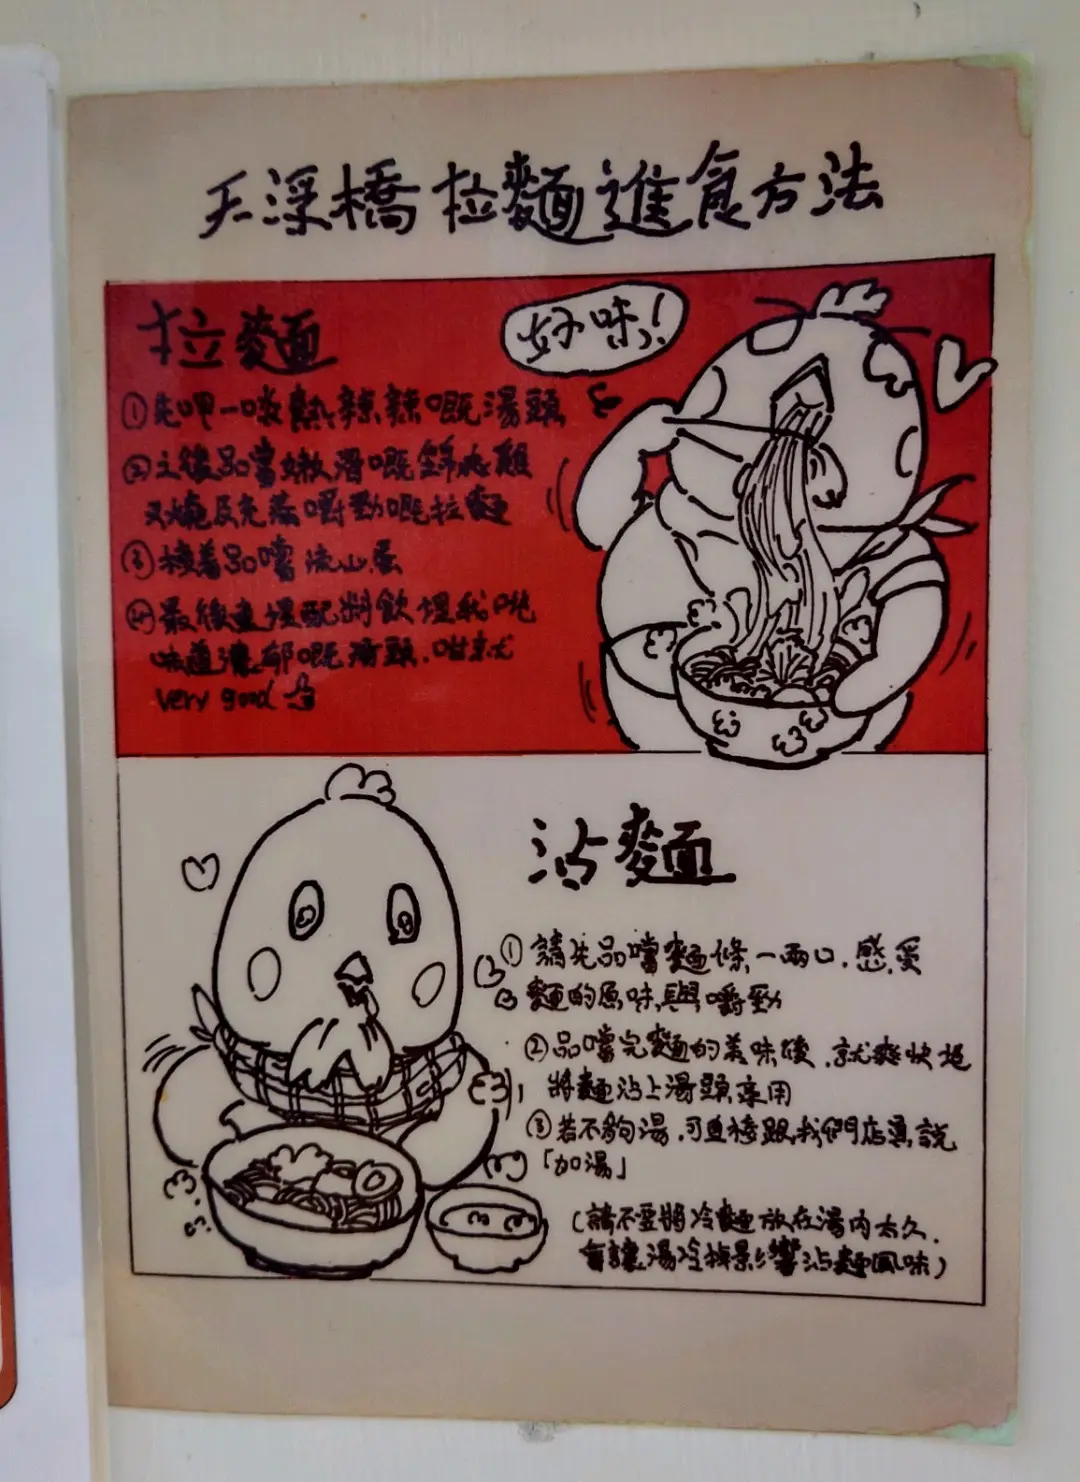 天浮橋拉麵進食方法
拉麵
好味!
①先呷一啖熱辣辣嘅湯頭
②之後品嘗嫩滑嘅 雞
叉燒及充滿嚼勁嘅拉麵
③接着品嚐流心蛋
④最後連埋配料飲埋我哋
味道濃郁嘅湯頭.咁就
very good
沾麵
①請先品嚐麵條一兩口.感受
麵的原味與嚼勁
②品嚐完麵的美味後.就爽快地
將麵沾上湯頭享用
③若不夠湯.可直接跟我們店員說
「加湯」
(請不要將冷麵放在湯內太久.
會讓湯冷掉影響沾麵風味)